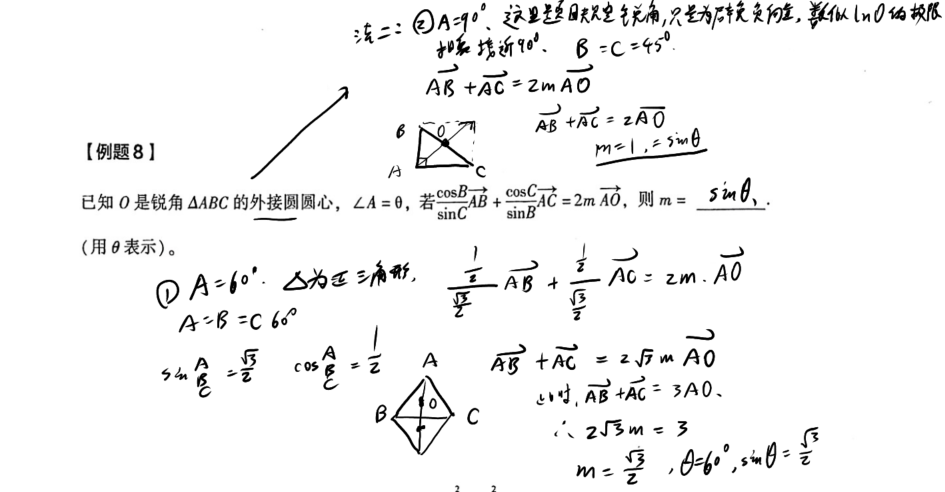 法二：② A=90°、这里题目规定锐角，只是为了避免负向量，类似 ln0 的极限
接近90°. B=C=45°.
AB→ + AC→ = 2m AO→
AB→ + AC→ = 2AO→
m=1, = sinθ
B O
A C
【例题8】
已知 O 是锐角 ΔABC 的外接圆圆心，∠A=θ，若 cosB/sinC AB→ + cosC/sinB AC→ = 2m AO→，则 m = sinθ、.
(用 θ 表示)。
① A=60°. △为正三角形, (1/2)/(√3/2) AB→ + (1/2)/(√3/2) AC→ = 2m·AO→
A=B=C 60°
sin A B C = √3/2 cos A B C = 1/2
AB→ + AC→ = 2√3 m AO→
A
B O C
此时, AB→ + AC→ = 3AO、
∴ 2√3m = 3
m = √3/2, θ=60°, sinθ = √3/2
2 2